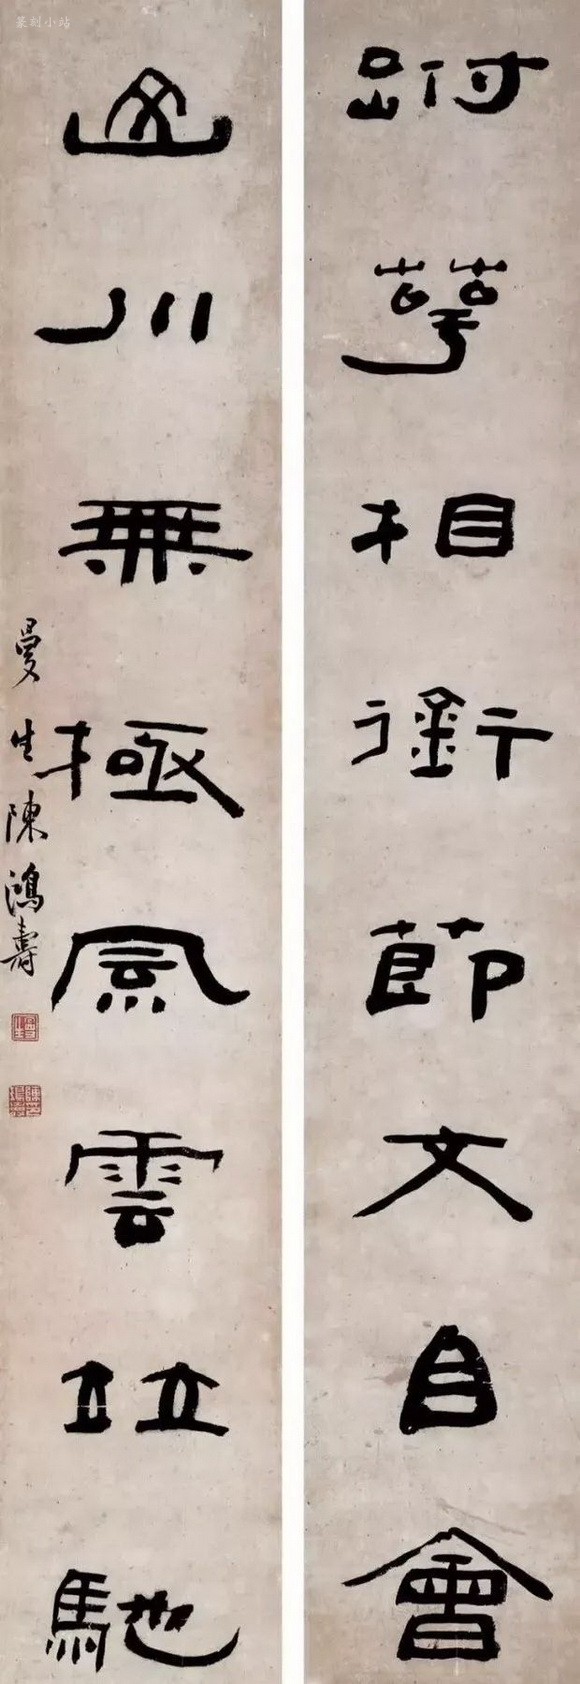 篆刻小站
跗萼相銜節文自會
山川無極風雲竝馳
曼生陳鴻壽
曼生